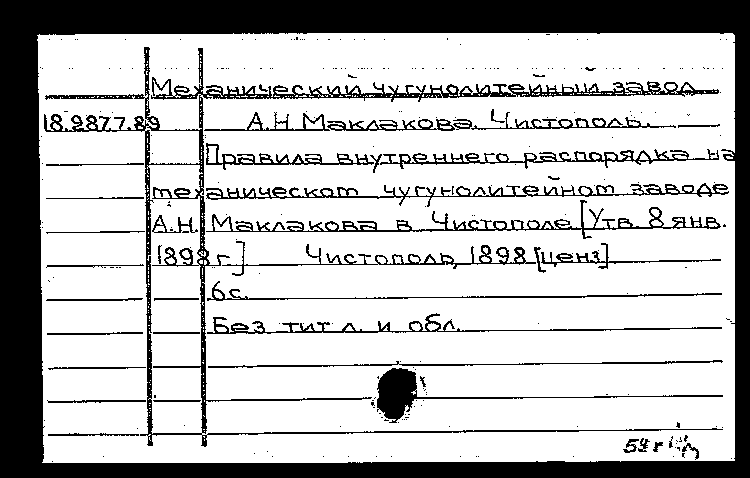 Механический чугунолитейный завод
18.287.7.89 А.Н. Маклакова. Чистополь.
Правила внутреннего распорядка на
механическом чугунолитейном заводе
А.Н. Маклакова в Чистополе [Утв. 8 янв.
1898 г.] Чистополь, 1898 [ценз].
6 с.
Без тит л. и обл.